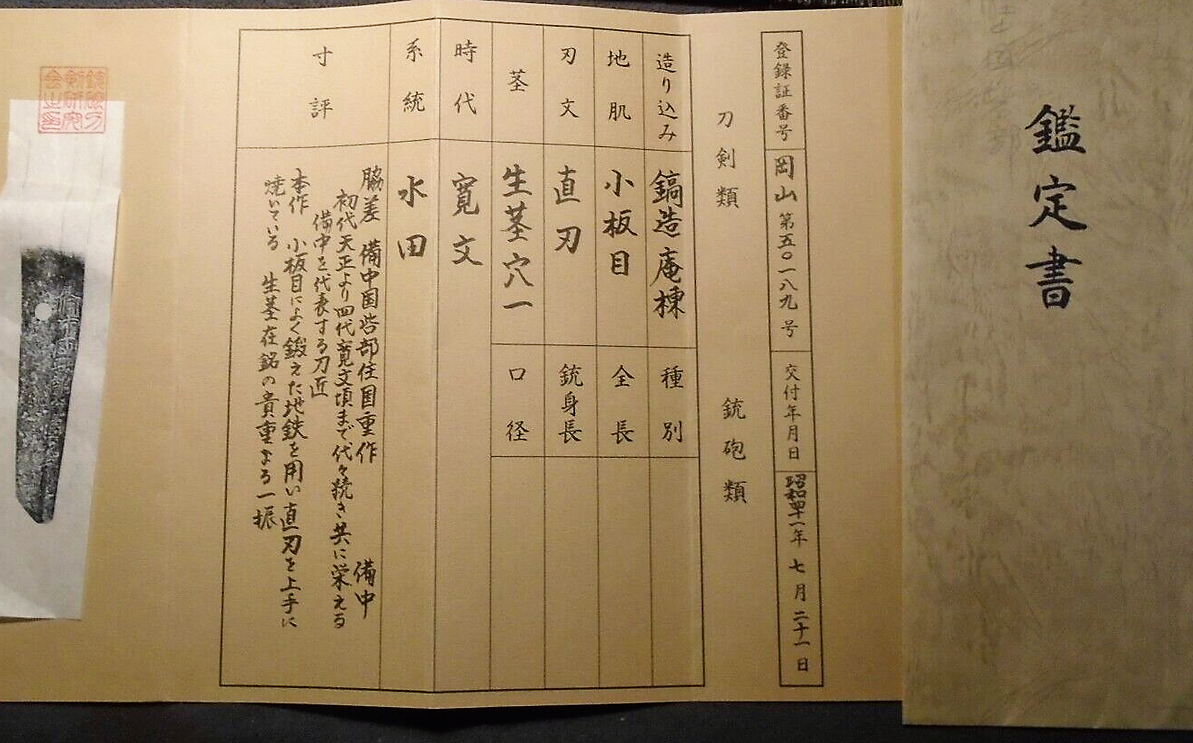 鑑定書
登録証番号 岡山 第五〇一八九号 交付年月日 昭和四十一年七月二十一日
刀剣類 銃砲類
造り込み 鎬造庵棟 種別
地肌 小板目 全長
刃文 直刃 銃身長
茎 生茎穴一 口径
時代 寛文
系統 水田
寸評
脇差 備中国呰部住国重作 備中
初代天正より四代寛文頃まで代々続き共に栄える
備中を代表する刀匠
本作 小板目によく鍛えた地鉄を用い直刃を上手に
焼いている 生茎在銘の貴重なる一振